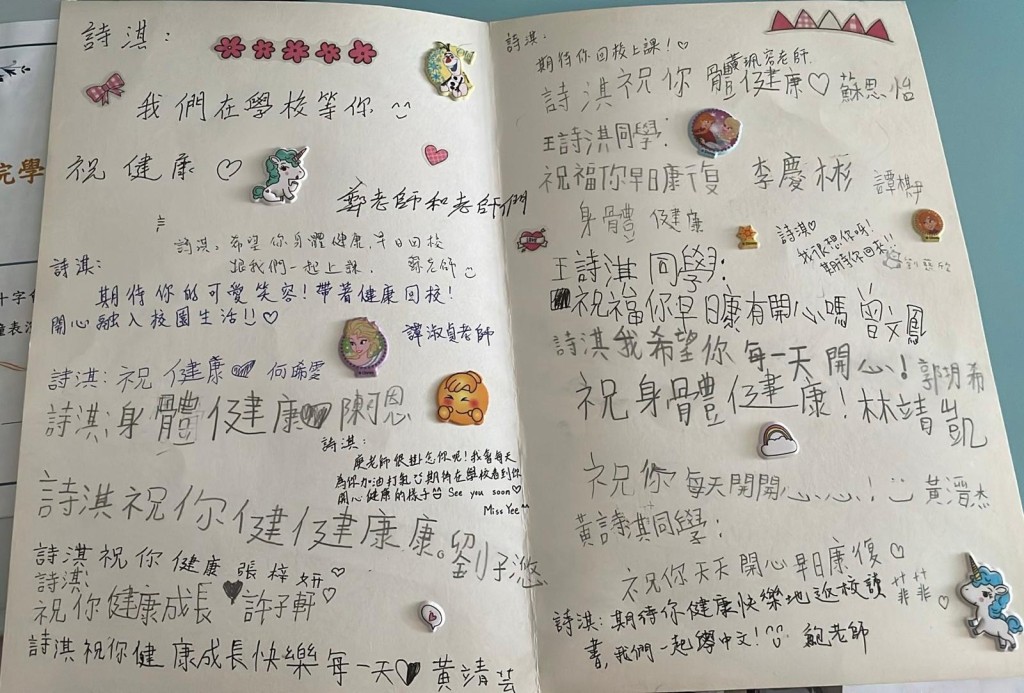 詩淇:
我們在學校等你
祝健康♡
鄭老師和老師們
詩淇:希望你身體健康,早日回校
跟我們一起上課. 蘇老師
詩淇:
期待你的可愛笑容!帶著健康回校!
開心融入校園生活!!♡
譚淑貞老師
詩淇:祝健康 何晞雯
詩淇:身體健康 陳恩
詩淇:
廖老師很掛念你呢!我會每天
為你加油打氣 期待在學校看到你
開心健康的樣子 See you soon♡
Miss Yee
詩淇祝你健健康康。劉子悠
詩淇祝你健康 張梓妍♡
詩淇:
祝你健康成長 許子軒
詩淇祝你健康成長快樂每一天 黃靖芸
詩淇:
期待你回校上課!♡
葉珮容老師
詩淇祝你身體健康♡ 蘇思怡
王詩淇同學:
祝福你早日康復 李慶彬
身體健康 譚棋
詩淇♡
我很想你呀!
期待你回來!!
王詩淇同學:
祝福你早日康有開心嗎 曾文鳳
詩淇我希望你每一天開心! 郭玥希
祝身體健康!林靖凱
祝你每天開開心心! 黃濬杰
黃詩淇同學:
祝你天天開心早日康復♡
菲菲♡
詩淇:期待你健康快樂地返校讀
書,我們一起學中文! 鮑老師